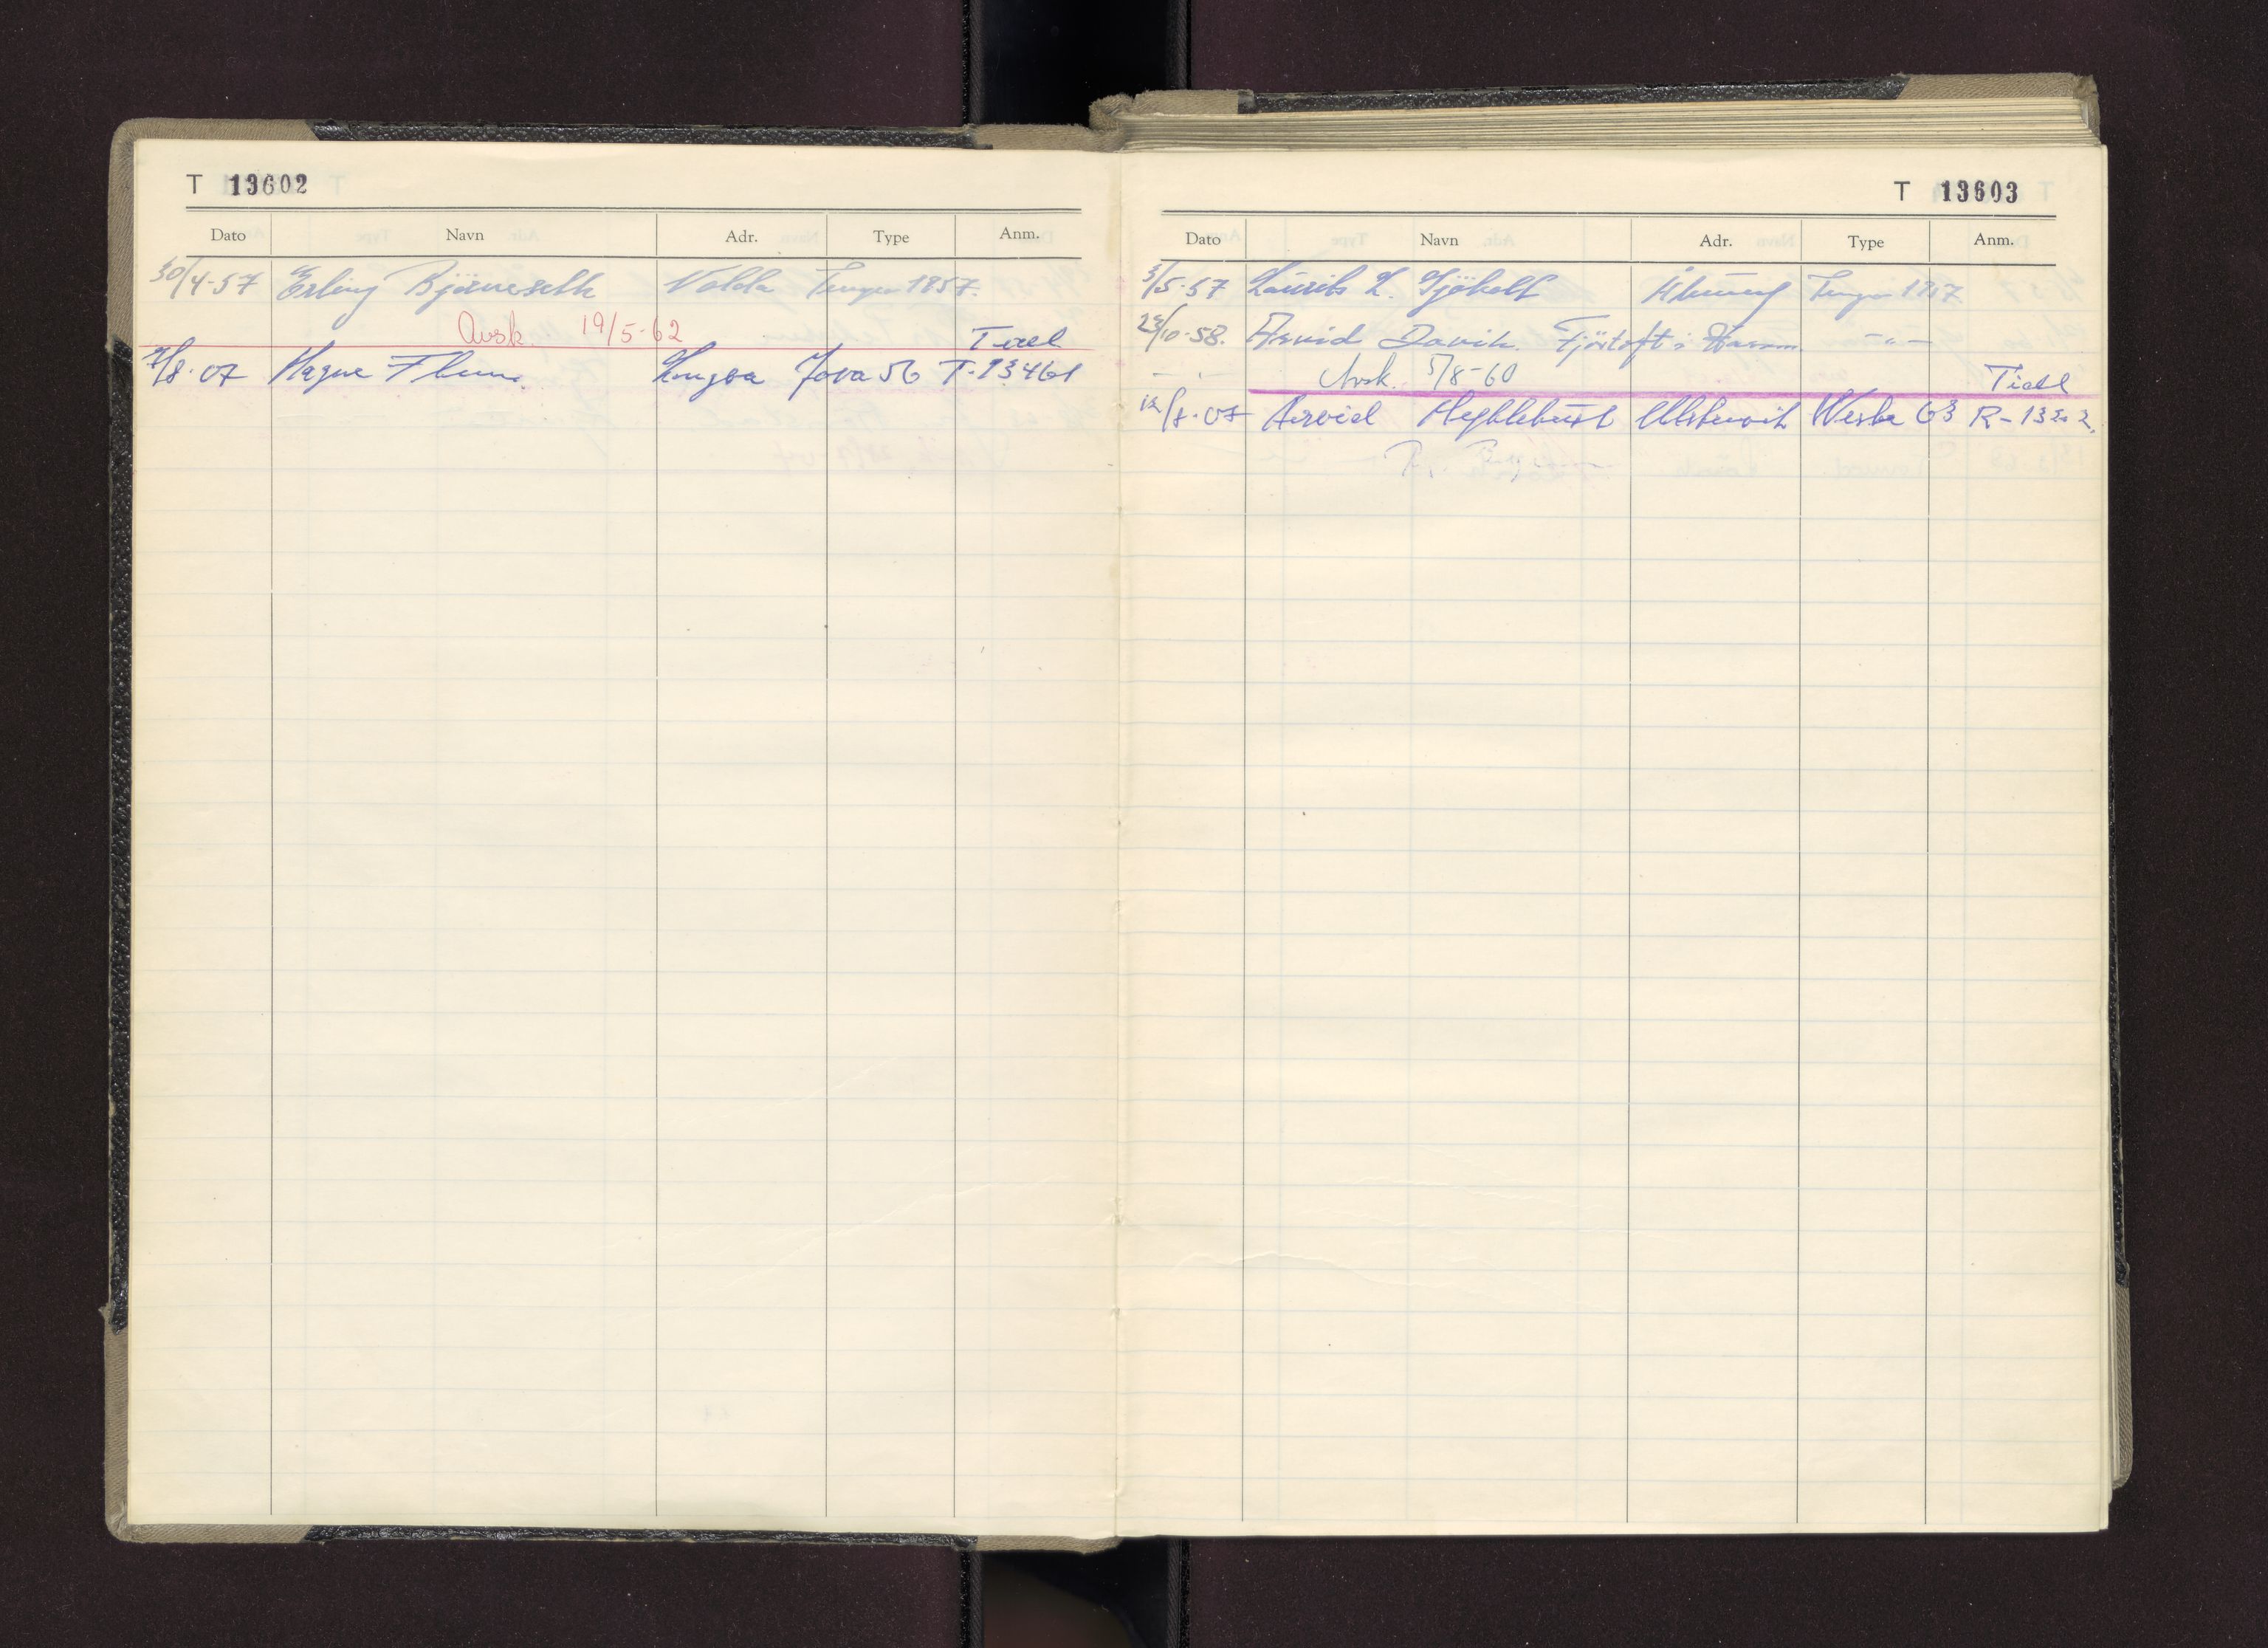 T 13602
Dato Navn Adr. Type Anm.
30/4-57 Erling Bjørneseth Volda Tempo 1957.
Avsk. 19/5-62
Tidl
/8-67 Magne Flem Longva Jawa 56 T-13461
T 13603
Dato Navn Adr. Type Anm.
3/5-57 Laurits L. Gjøkalt Tempo 1957
23/10-58. Arvid Davik Fjørtoft i Haram -"-
Avsk. 5/8-60
Tidl
12/8-67 Arvid Myklebust Ulsteinvik Vespa 63 R-1322.